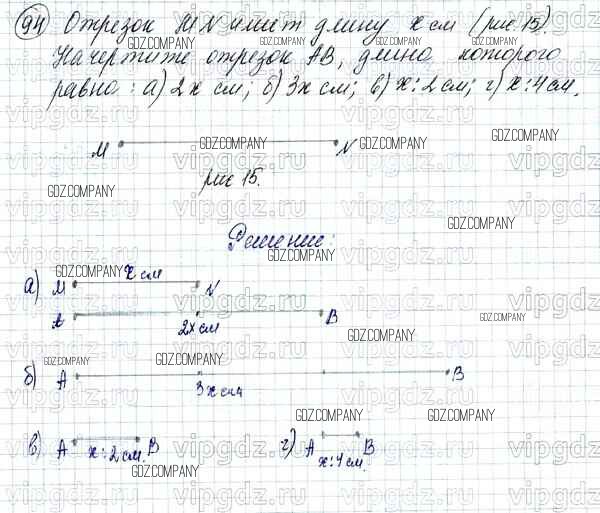 94 Отрезок MN имеет длину x см (рис 15).
Начертите отрезок AB, длина которого
равна: а) 2x см; б) 3x см; в) x:2 см; г) x:4 см.
M N
рис 15.
Решение:
а) M x см N
A 2x см B
б) A 3x см B
в) A x:2 см. B г) A x:4 см. B
GDZ.COMPANY
vipgdz.ru